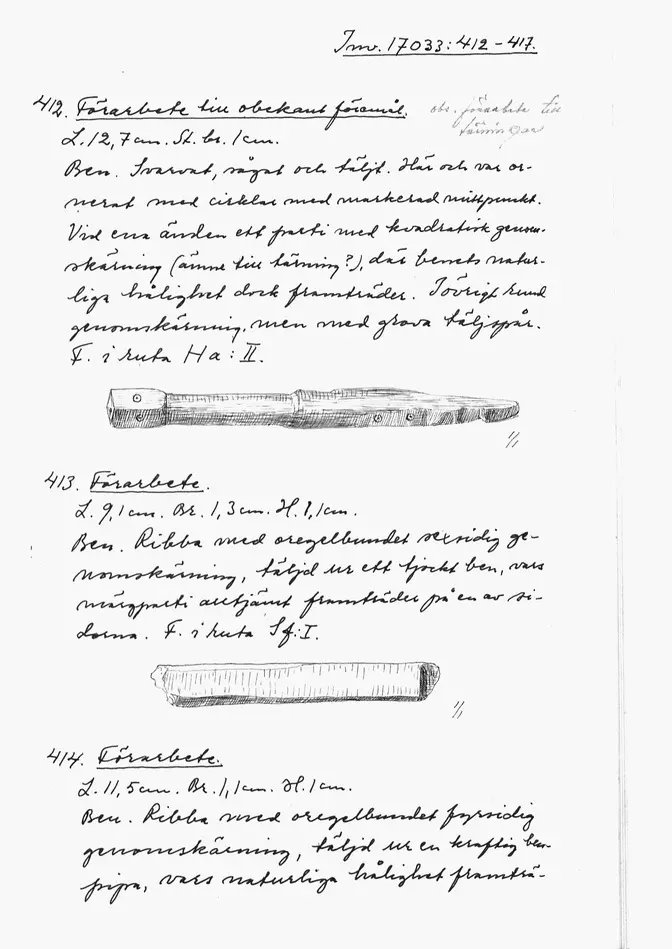 Inv. 17033:412-417.
412. Förarbete till obekant föremål. obs. förarbete till
tärningar
L. 12,7 cm. St. br. 1 cm.
Ben. Svarvat, sågat och täljt. Här och var or-
nerat med cirklar med markerad mittpunkt.
Vid ena änden ett parti med kvadratisk genom-
skärning (ämne till tärning?), där benets natur-
liga hålighet dock framträder. I övrigt rund
genomskärning, men med grova täljspår.
F. i ruta Ha:II.
1/1
413. Förarbete.
L. 9,1 cm. Br. 1,3 cm. H. 1,1 cm.
Ben. Ribba med oregelbundet sexsidig ge-
nomskärning, täljd ur ett tjockt ben, vars
märgparti alltjämt framträder på en av si-
dorna. F. i ruta Sf:I.
1/1
414. Förarbete.
L. 11,5 cm. Br. 1,1 cm. H. 1 cm.
Ben. Ribba med oregelbundet fyrsidig
genomskärning, täljd ur en kraftig ben-
pipa, vars naturliga hålighet framträ-